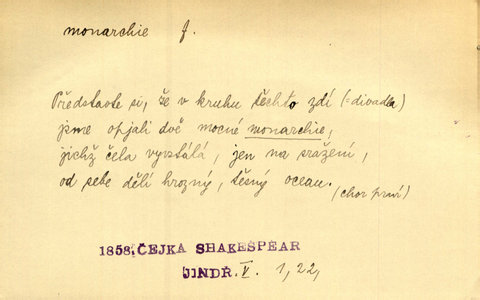 monarchie f.
Představte si, že v kruhu těchto zdí (=divadla)
jsme opjali dvě mocné monarchie,
jichž čela vyvstálá, jen na sražení,
od sebe dělí hrozný, těsný ocean.
(chor praví)
1858. ČEJKA SHAKESPEAR
JINDŘ. V. 1, 22,